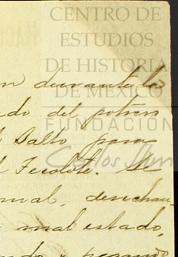 CENTRO DE
ESTUDIOS
DE HISTORIA
DE MÉXICO
FUNDACIÓN
Carlos Slim
n durante la
do del potrero
l Salto, para
l Tecolote. Se
mal, deschan
mal estado,